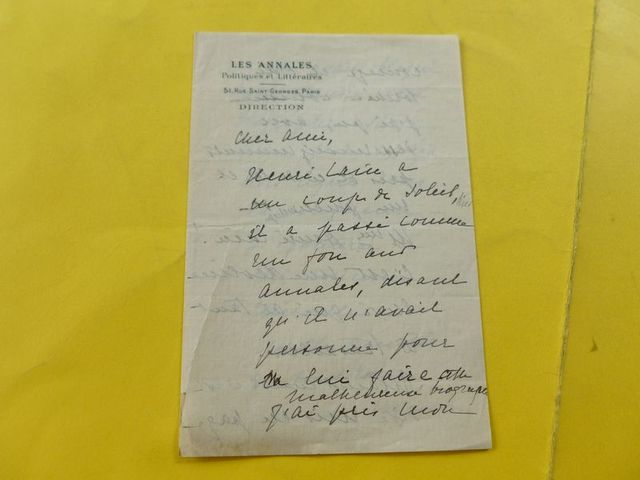 LES ANNALES
Politiques et Littéraires
51, RUE SAINT GEORGES, PARIS
DIRECTION
Cher ami,
Henri a
un coup de soleil,
il a passé comme
un fou aux
annales, disant
qu'il n'avait
personne pour
lui faire cette
malheureuse biographie
j'ai pris mon